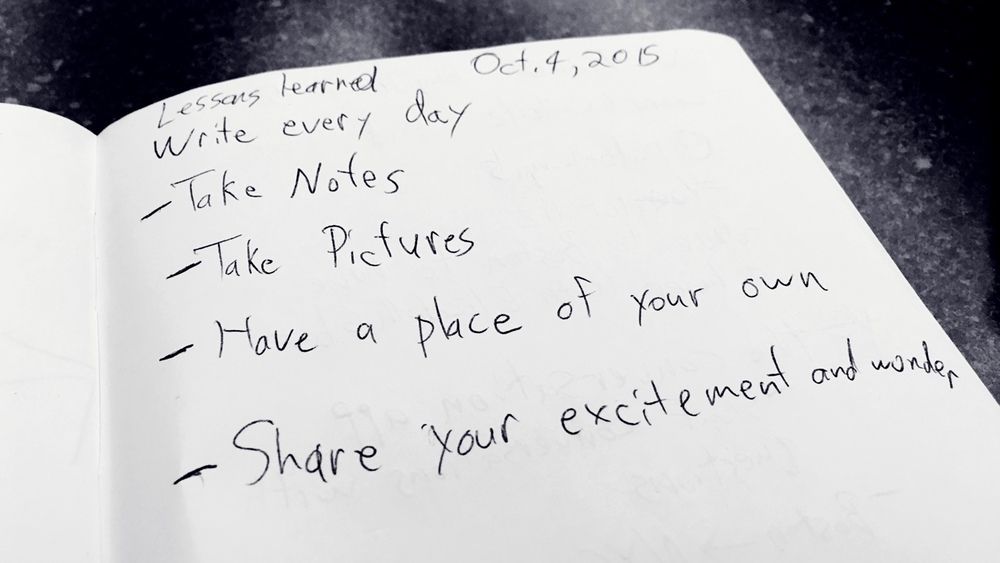 Lessons learned Oct. 4, 2015
Write every day
- Take Notes
- Take Pictures
- Have a place of your own
- Share your excitement and wonder